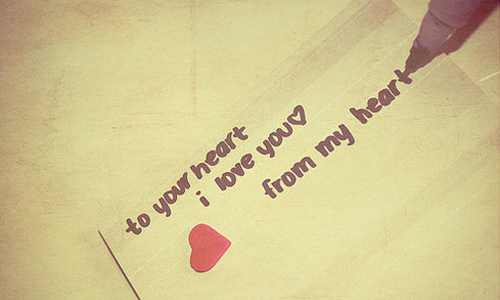 to your heart
i love you♡
from my heart